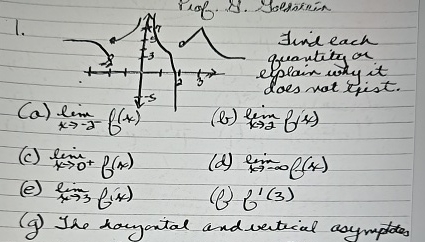 Prof. G. Goldstein
1.
Find each
quantity or
explain why it
does not exist.
3
-2
2
3
-5
(a) lim x→-2⁻ f(x)
(b) lim x→2 f(x)
(c) lim x→0⁺ f(x)
(d) lim x→-∞ f(x)
(e) lim x→3 f(x)
(f) f'(3)
(g) The horizontal and vertical asymptotes